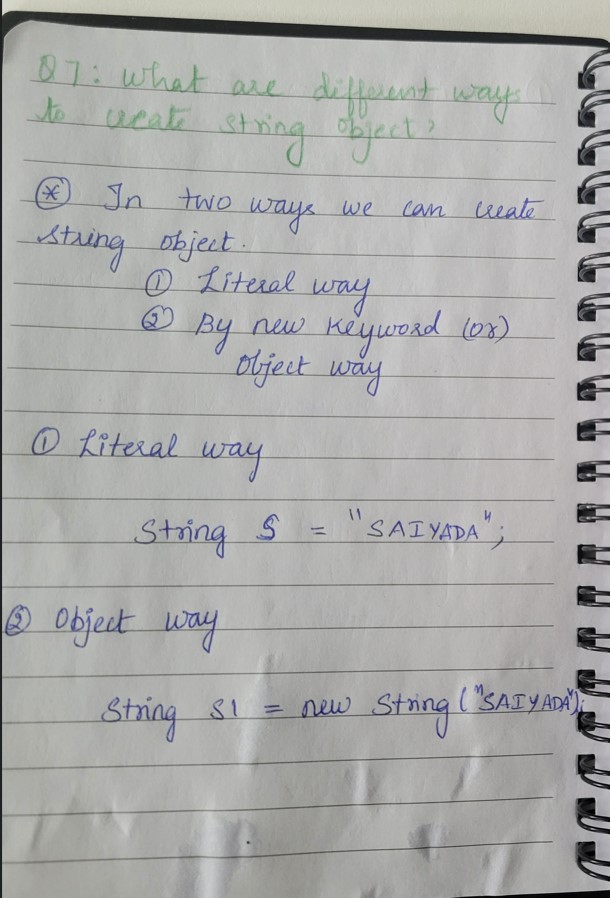 Q7: What are different ways
to create string object?
* In two ways we can create
string object.
① Literal way
② By new keyword (or)
object way
① Literal way
String S = "SAIYADA";
② Object way
String S1 = new String("SAIYADA");